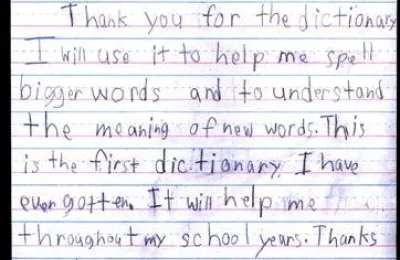 Thank you for the dictionary
I will use it to help me spell
bigger words and to understand
the meaning of new words. This
is the first dictionary I have
ever gotten. It will help me
throughout my school years. Thanks